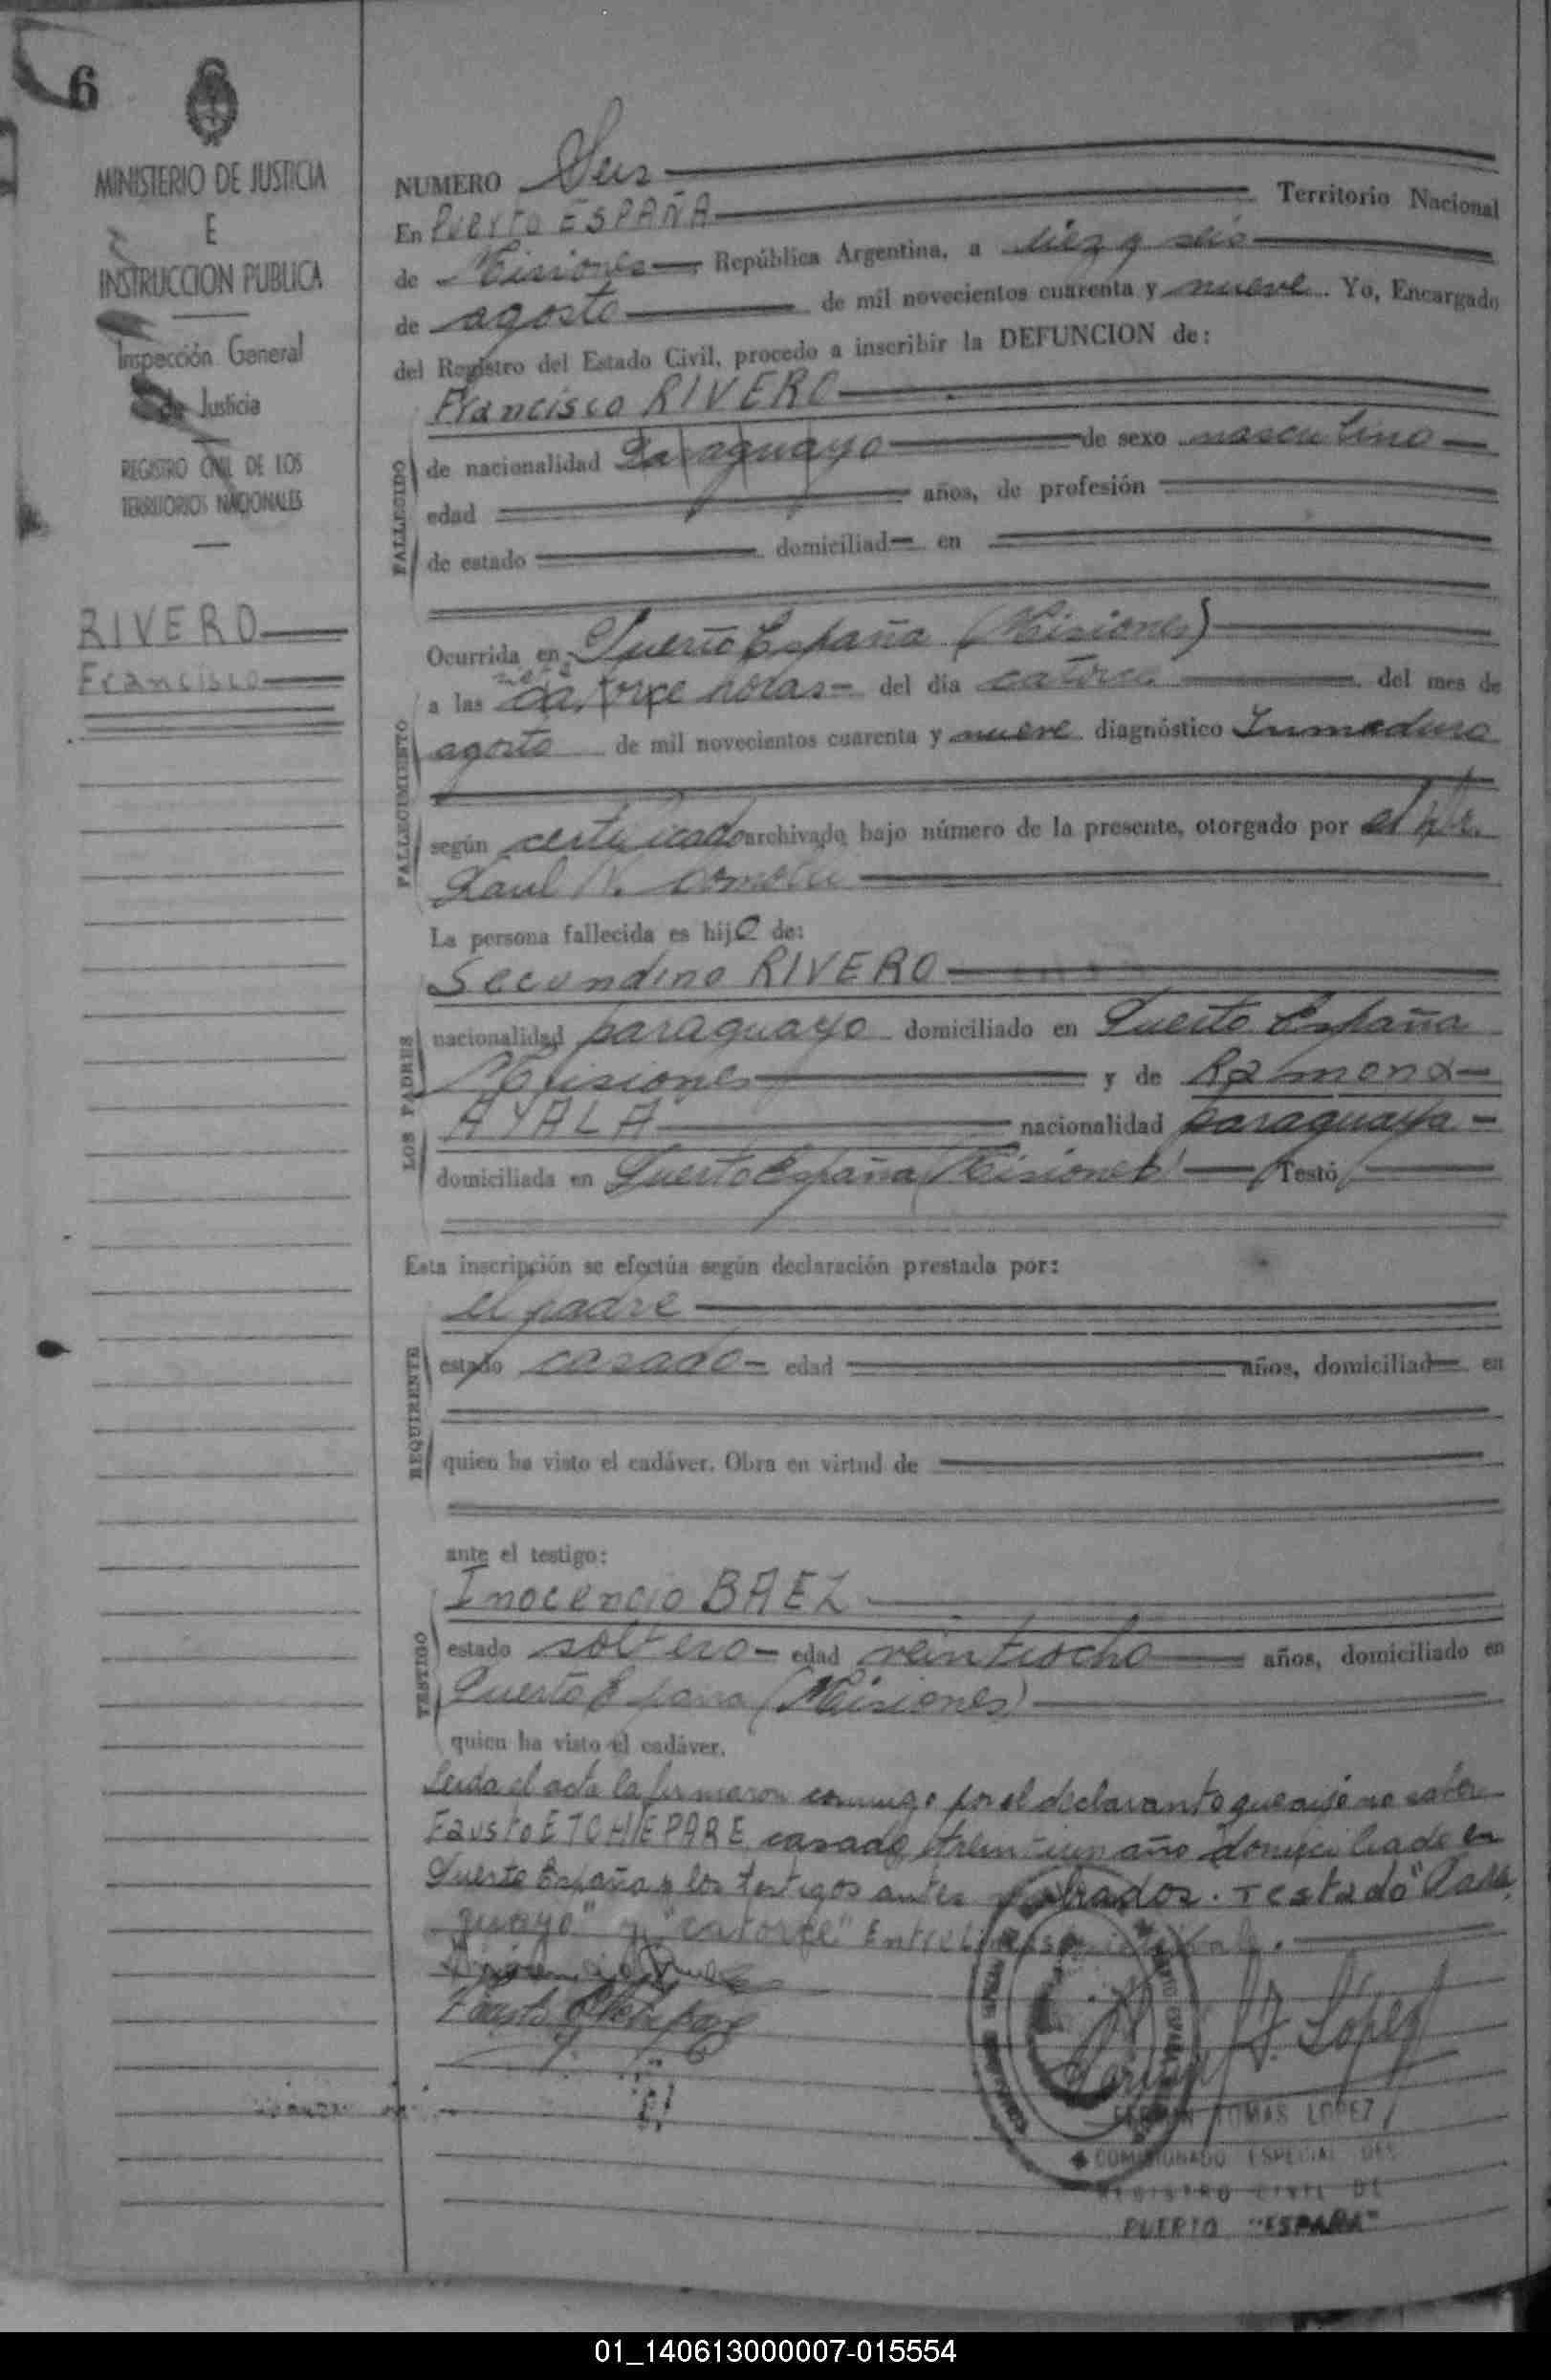 6
MINISTERIO DE JUSTICIA
E
INSTRUCCION PUBLICA
Inspección General
de Justicia
REGISTRO CIVIL DE LOS
TERRITORIOS NACIONALES
RIVERO
Francisco
NUMERO Seis
En PUERTO ESPAÑA Territorio Nacional
de Misiones República Argentina, a diez y seis
de agosto de mil novecientos cuarenta y nueve. Yo, Encargado
del Registro del Estado Civil, procedo a inscribir la DEFUNCION de:
Francisco RIVERO
FALLECIDO
de nacionalidad Paraguayo de sexo masculino
edad años, de profesión
de estado domiciliad en
Ocurrida en Puerto España (Misiones)
FALLECIMIENTO
a las catorce horas del día catorce del mes de
agosto de mil novecientos cuarenta y nueve diagnóstico Inmaduro
según certificado archivado bajo número de la presente, otorgado por el Dr.
Raul N.
La persona fallecida es hijo de:
Secundino RIVERO
LOS PADRES
nacionalidad paraguayo domiciliado en Puerto España
Misiones y de Ramona
AYALA nacionalidad paraguaya
domiciliada en Puerto España (Misiones) Testó
Esta inscripción se efectúa según declaración prestada por:
el padre
REQUIRENTE
estado casado edad años, domiciliad en
quien ha visto el cadáver. Obra en virtud de
ante el testigo:
Inocencio BAEZ
TESTIGO
estado soltero edad veintiocho años, domiciliado en
Puerto España (Misiones)
quien ha visto el cadáver.
Leida el acta la firmaron conmigo por el declarante que dijo no saber
Fausto ETCHEPARE casado treintiun año domiciliado en
Puerto España y los testigos antes nombrados. Testado "Para
guayo" y "catorce" Entrelineas
J. López
FERMIN TOMAS LOPEZ
COMISIONADO ESPECIAL DEL
REGISTRO CIVIL DE
PUERTO "ESPAÑA"
01_140613000007-015554